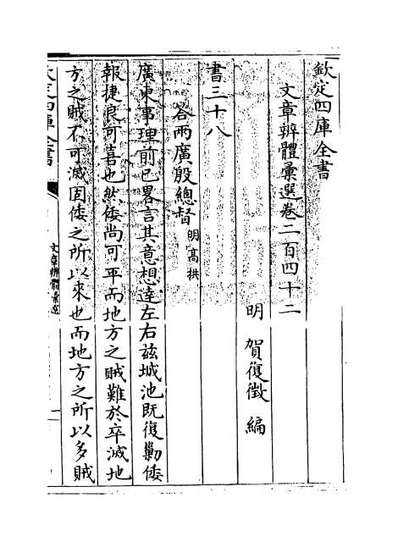 欽定四庫全書
文章辨體彙選卷二百四十二
明 賀復徵 編
書三十八
答兩廣殷總督明高拱
廣東事理前已畧言其意想達左右兹城池既復勦倭
報捷良可喜也然倭尚可平而地方之賊難於卒滅地
方之賊不可滅固倭之所以來也而地方之所以多賊
欽定四庫全書
文章辨體彙選
一